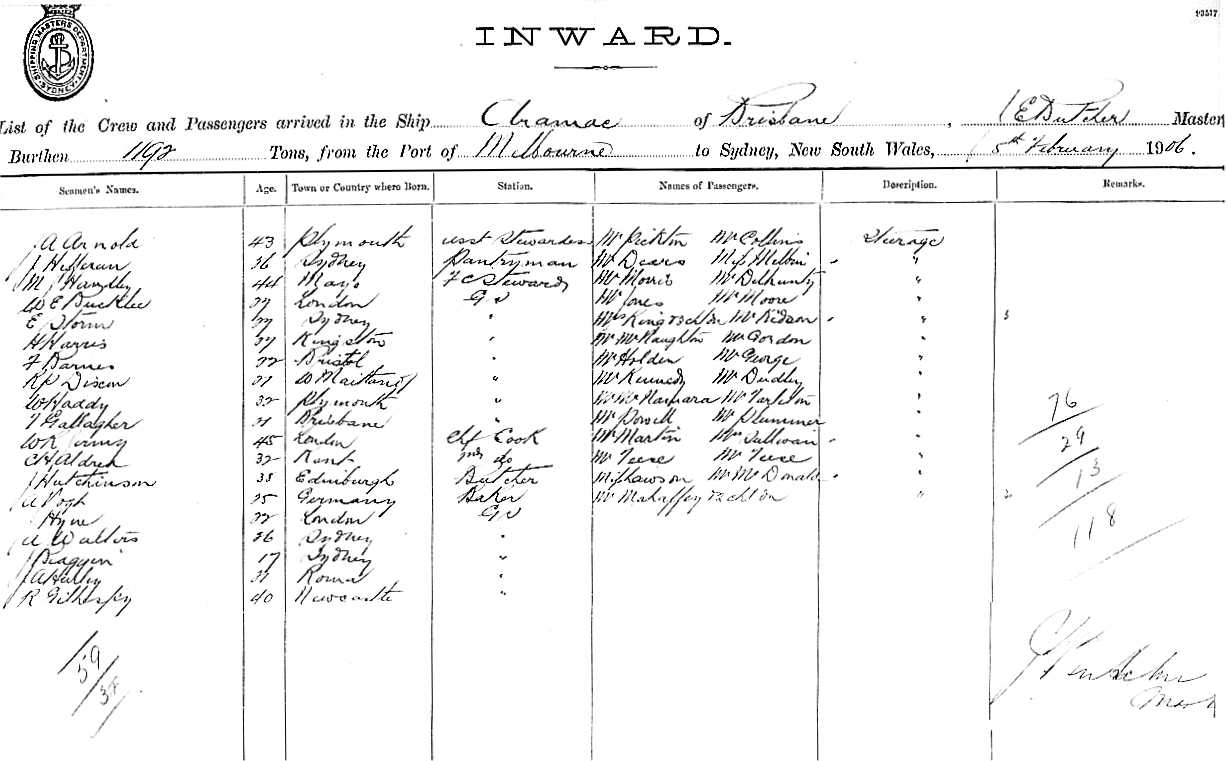 93517
SHIPPING MASTERS DEPARTMENT SYDNEY
INWARD.
List of the Crew and Passengers arrived in the Ship Aramac of Brisbane, E Butcher Master
Burthen 1192 Tons, from the Port of Melbourne to Sydney, New South Wales, 5th February 1906.
Seamen's Names. Age. Town or Country where Born. Station. Names of Passengers. Description. Remarks.
A Arnold 43 Plymouth asst Stewardess Mr Pickton Mr Collins Steerage
J Heffernan 36 Sydney Pantryman Mr Deers "
44 Mayo F C Steward Mr Morris Mr Delhunty "
W E Bucklee London G S Mr Jones Mr Moore "
E Storm Sydney " Mr Kidson " 3
H Harris Kingston " Mr McNaughton Mr Gordon "
F Barnes 22 Bristol Mr Holden Mr George "
R P Dixon W Maitland " Mr Kennedy Mr Dudley "
W Haddy 32 Plymouth " Mr McNamara Mr Tarleton "
T Gallagher Brisbane " Mr Powell Mr Plummer " 76
W R 45 London Chf Cook Mr Martin Mrs Sullivan " 29
C H Aldred 32 Kent 2nd do Mr Teese Mr Teese " 13
J Hutchinson Edinburgh Butcher Mr McDonald "
A Vogt 25 Germany Baker Mr Mahaffey " 2
Hyne 22 London G S 118
A Walters 26 Sydney "
17 Sydney "
Roma "
R Gillespy 40 Newcastle "
59
38